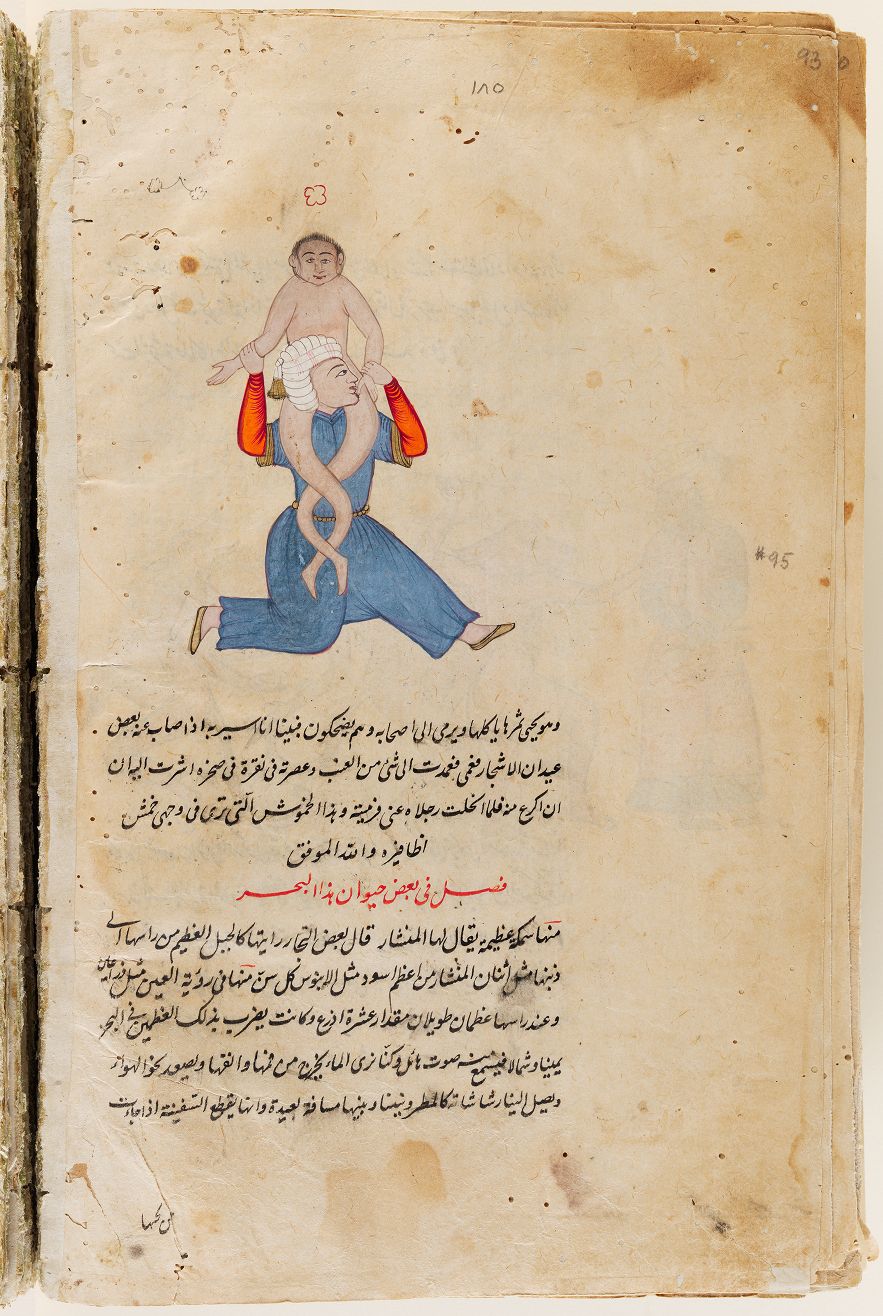 93
١٨٥
#95
وهو يجني ثمرها يأكلها ويرمى الى اصحابه وهم يضحكون فبينا انا اسير به اذ اصاب عينه بعض
عيدان الاشجار فعمى فعمدت الى شئ من العنب وعصرته فى نقرة فى صخره اشرت اليه ان
ان اكرع منه فلما انحلت رجلاه عنى فرميته وهذا الخموش التى ترى فى وجهى خمش
اظافيره والله الموفق
فصل فى بعض حيوان هذا البحر
منها سمكة عظيمة يقال لها المنشار قال بعض التجار رايتها كالجبل العظيم من راسها الى
ذنبها مثل اسنان المنشار من اعظم اسود مثل الابنوس كل سن منها فى رؤية العين مثل ذراعين
وعند راسها عظمان طويلان مقدار عشرة اذرع وكانت يضرب بذلك العظمين فى البحر
يمينا وشمالا فيسمع منه صوت هائل وكنا نرى الماء يخرج من فمها وانفها ويصعد نحو الهواء
ويصل الينا رشاشاته كالمطر وبيننا وبينها مسافة بعيدة وانها يقطع السفينة اذا جاءت
من تحتها